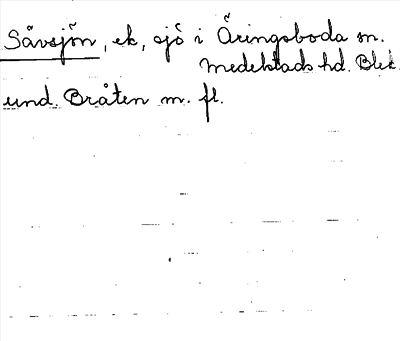 Sävsjön, ek, sjö i Äringsboda sn.
Medelstads hd. Blek.
und. Bråten m. fl.